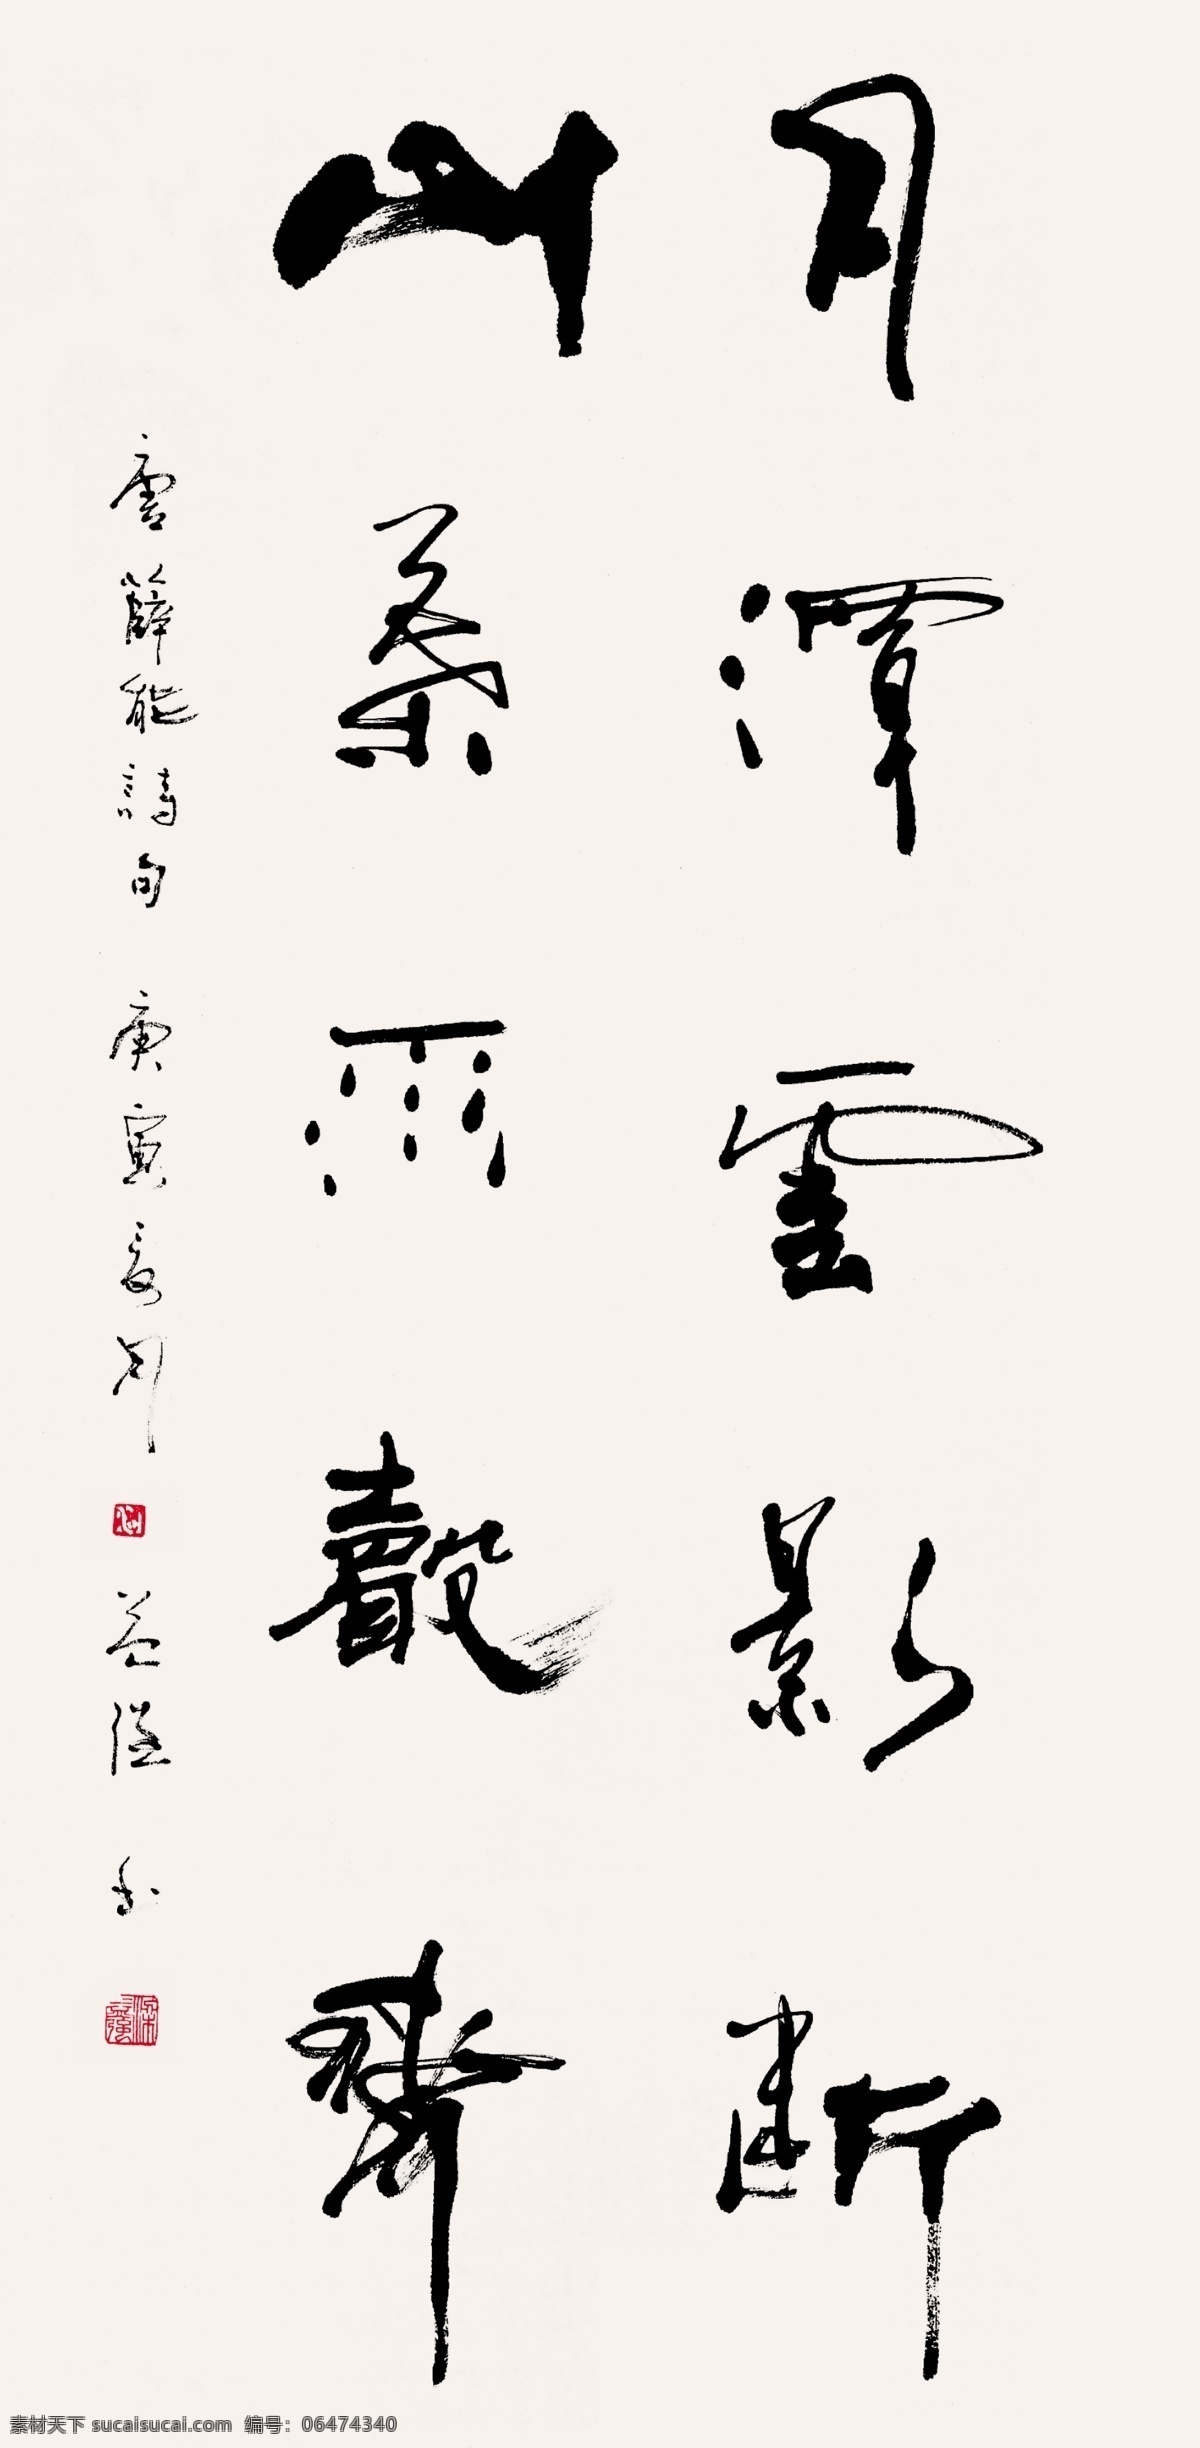 月潭雲影斷
山葉雨聲齊
唐薛能詩句 庚寅夏月 益 书
素材天下 sucaisucai.com 编号：06474340